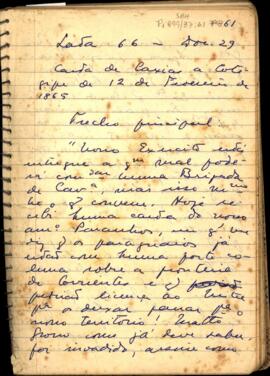 61
Lata 66 — Doc. 29
Carta de Caxias a Cote-
gipe de 12 de Fevereiro de
1865
Trecho principal:
"Nosso Exercito está
intrigue a qm mal pode
com uma Brigada
de Cava, mas isso mmo
he o q convem. Hoje re-
cebi huma carta do nosso
amo Paranhos, em q me
diz q os paraguaios já
estão com huma forte co-
luna sobre a fronteira
de Corrientes e q
pedirão licença ao
pa os deixar passar po
nosso territorio! Matto
Grosso como já deve saber
foi invadido, assim como